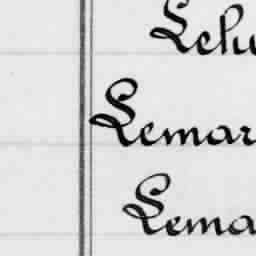 Lehu
Lemar
Lema